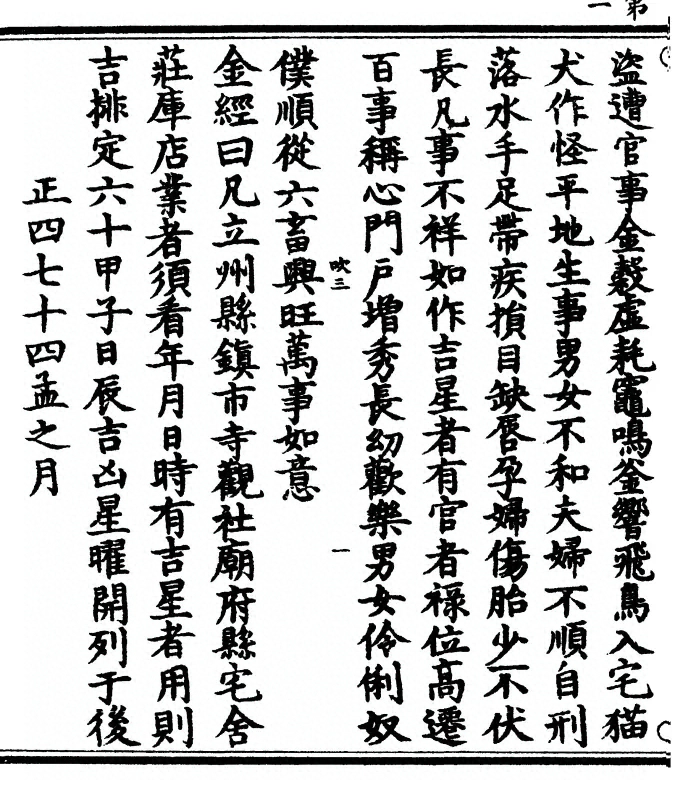 第
一
盜遭官事金穀虛耗竈鳴釜響飛鳥入宅猫
犬作怪平地生事男女不和夫婦不順自刑
落水手足帶疾損目缺唇孕婦傷胎少不伏
長凡事不祥如作吉星者有官者祿位高遷
百事稱心門戶增秀長幼歡樂男女伶俐奴
吹三
一
僕順從六畜興旺萬事如意
金經曰凡立州縣鎮市寺觀社廟府縣宅舍
莊庫店業者須看年月日時有吉星者用則
吉排定六十甲子日辰吉凶星曜開列于後
正四七十四孟之月